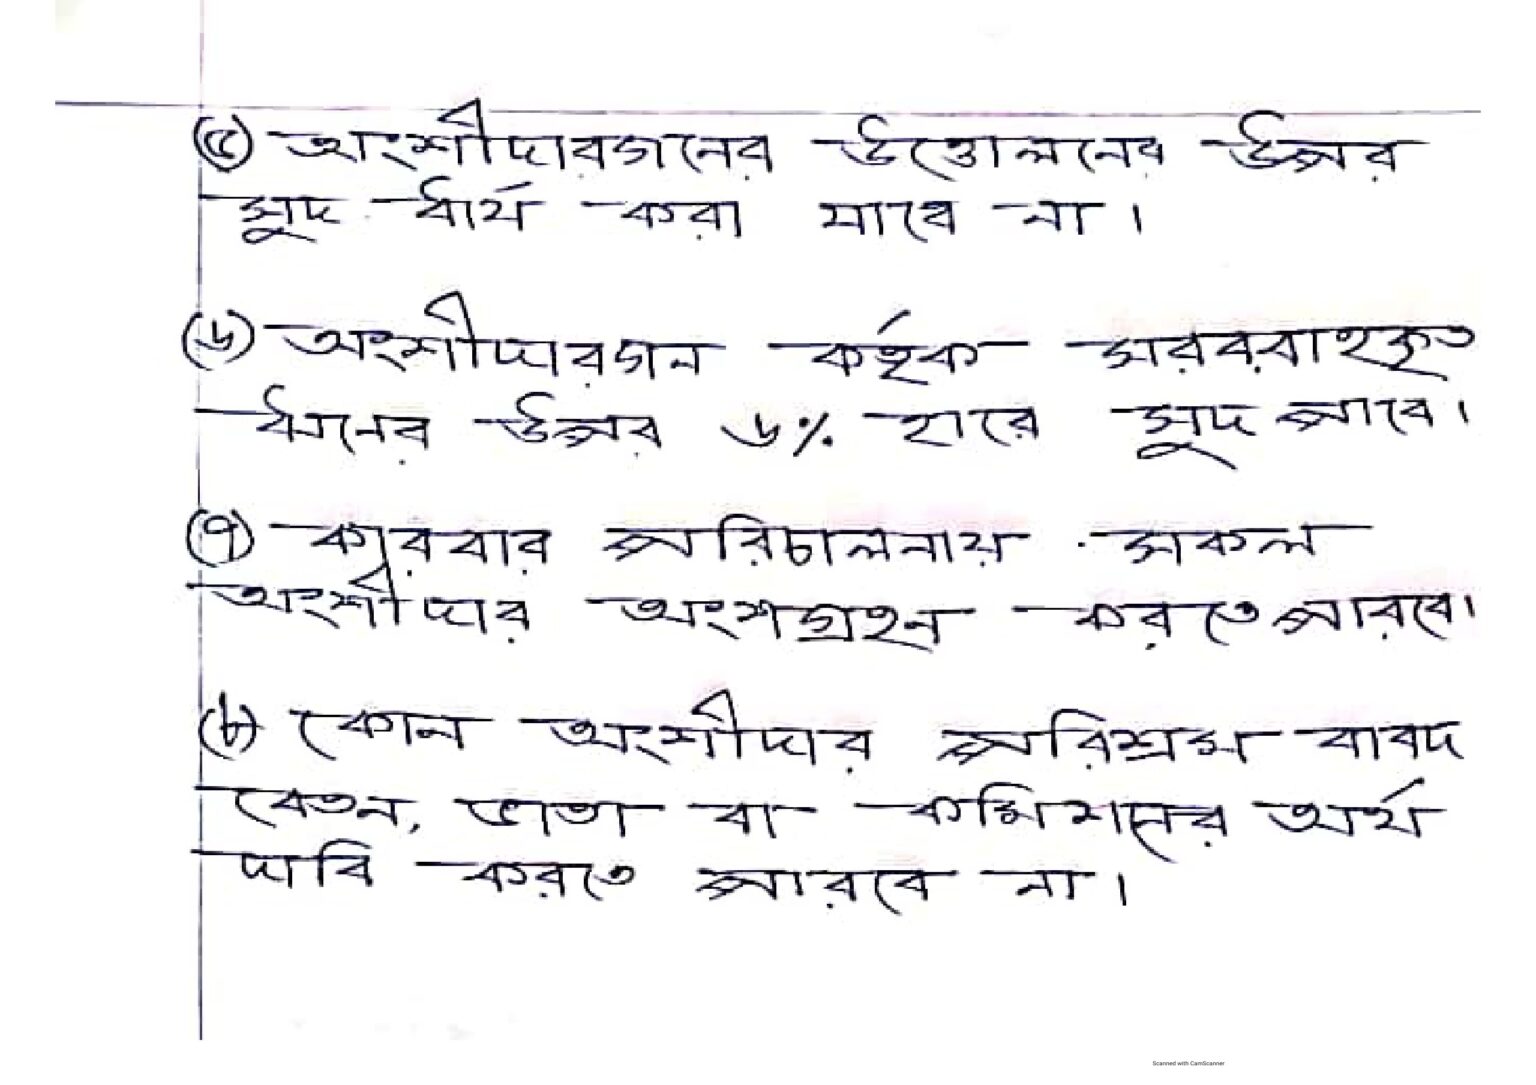 (৫) অংশীদারগনের উত্তোলনের উপর
সুদ ধার্য করা যাবে না।
(৬) অংশীদারগন কর্তৃক সরবরাহকৃত
ঋনের উপর ৬% হারে সুদ পাবে।
(৭) কারবার পরিচালনায় সকল
অংশীদার অংশগ্রহন করতে পারবে।
(৮) কোন অংশীদার পরিশ্রম বাবদ
বেতন, ভাতা বা কমিশনের অর্থ
দাবি করতে পারবে না।
Scanned with CamScanner